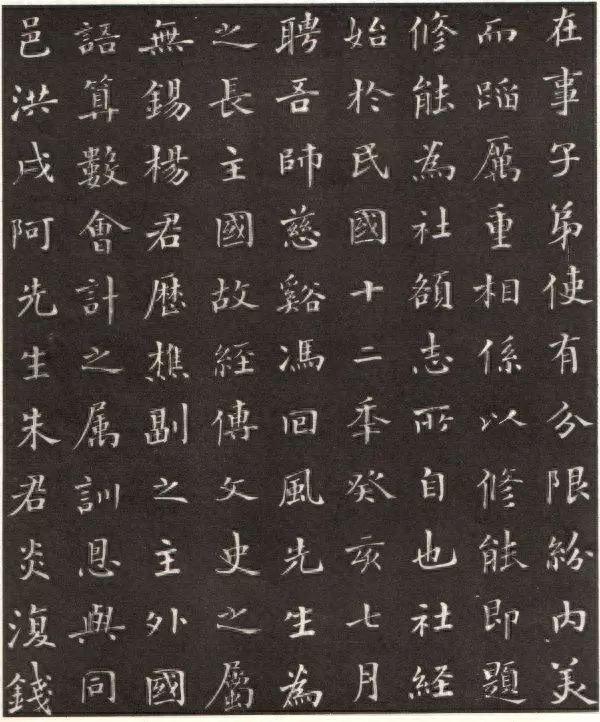 在事子弟使有分限紛內美
而蹈厲重相係以修能即題
修能為社額志所自也社經
始於民國十二年癸亥七月
聘吾師慈谿馮回風先生為
之長主國故經傳文史之屬
無錫楊君歷樵副之主外國
語算數會計之属訓恩與同
邑洪戌阿先生朱君炎復錢